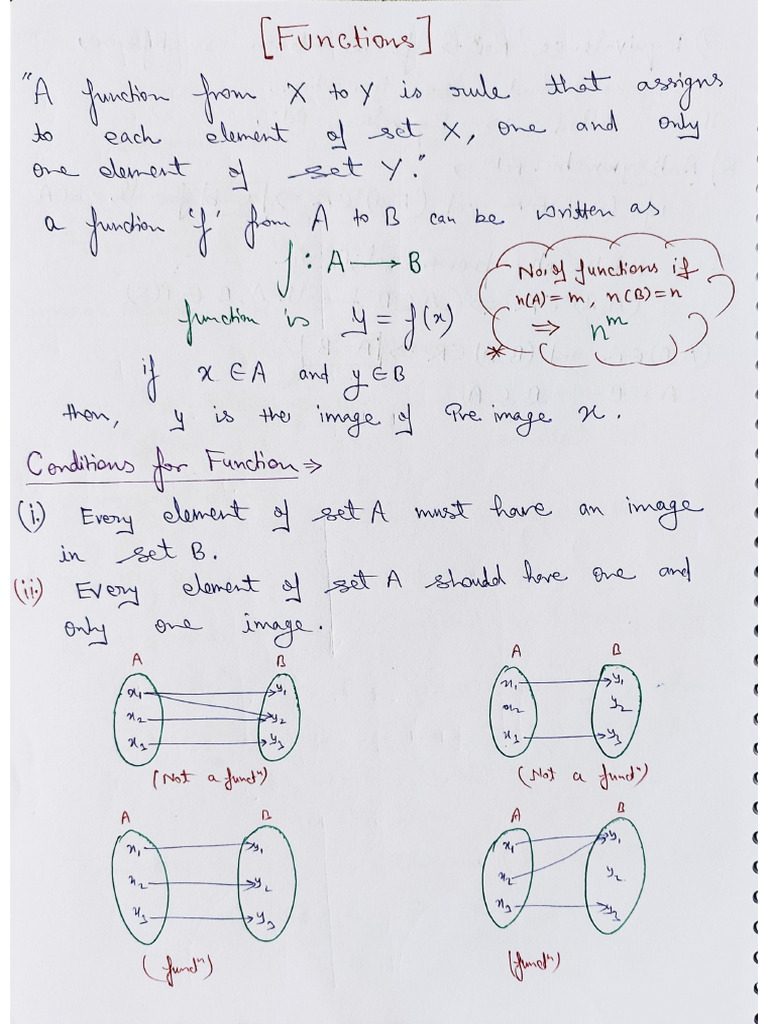 [Functions]
"A function from X to Y is rule that assigns
to each element of set X, one and only
one element of set Y."
a function 'f' from A to B can be written as
f : A ⟶ B
function is y = f(x)
No. of functions if
n(A) = m, n(B) = n
⇒ n^m
*
if x ∈ A and y ∈ B
then, y is the image of Pre image x.
Conditions for Function ⇒
(i.) Every element of set A must have an image
in set B.
(ii.) Every element of set A should have one and
only one image.
A B
x₁ y₁
x₂ y₂
x₃ y₃
(Not a functⁿ)
A B
x₁ y₁
x₂ y₂
x₃ y₃
(Not a functⁿ)
A B
x₁ y₁
x₂ y₂
x₃ y₃
(functⁿ)
A B
x₁ y₁
x₂ y₂
x₃ y₃
(functⁿ)